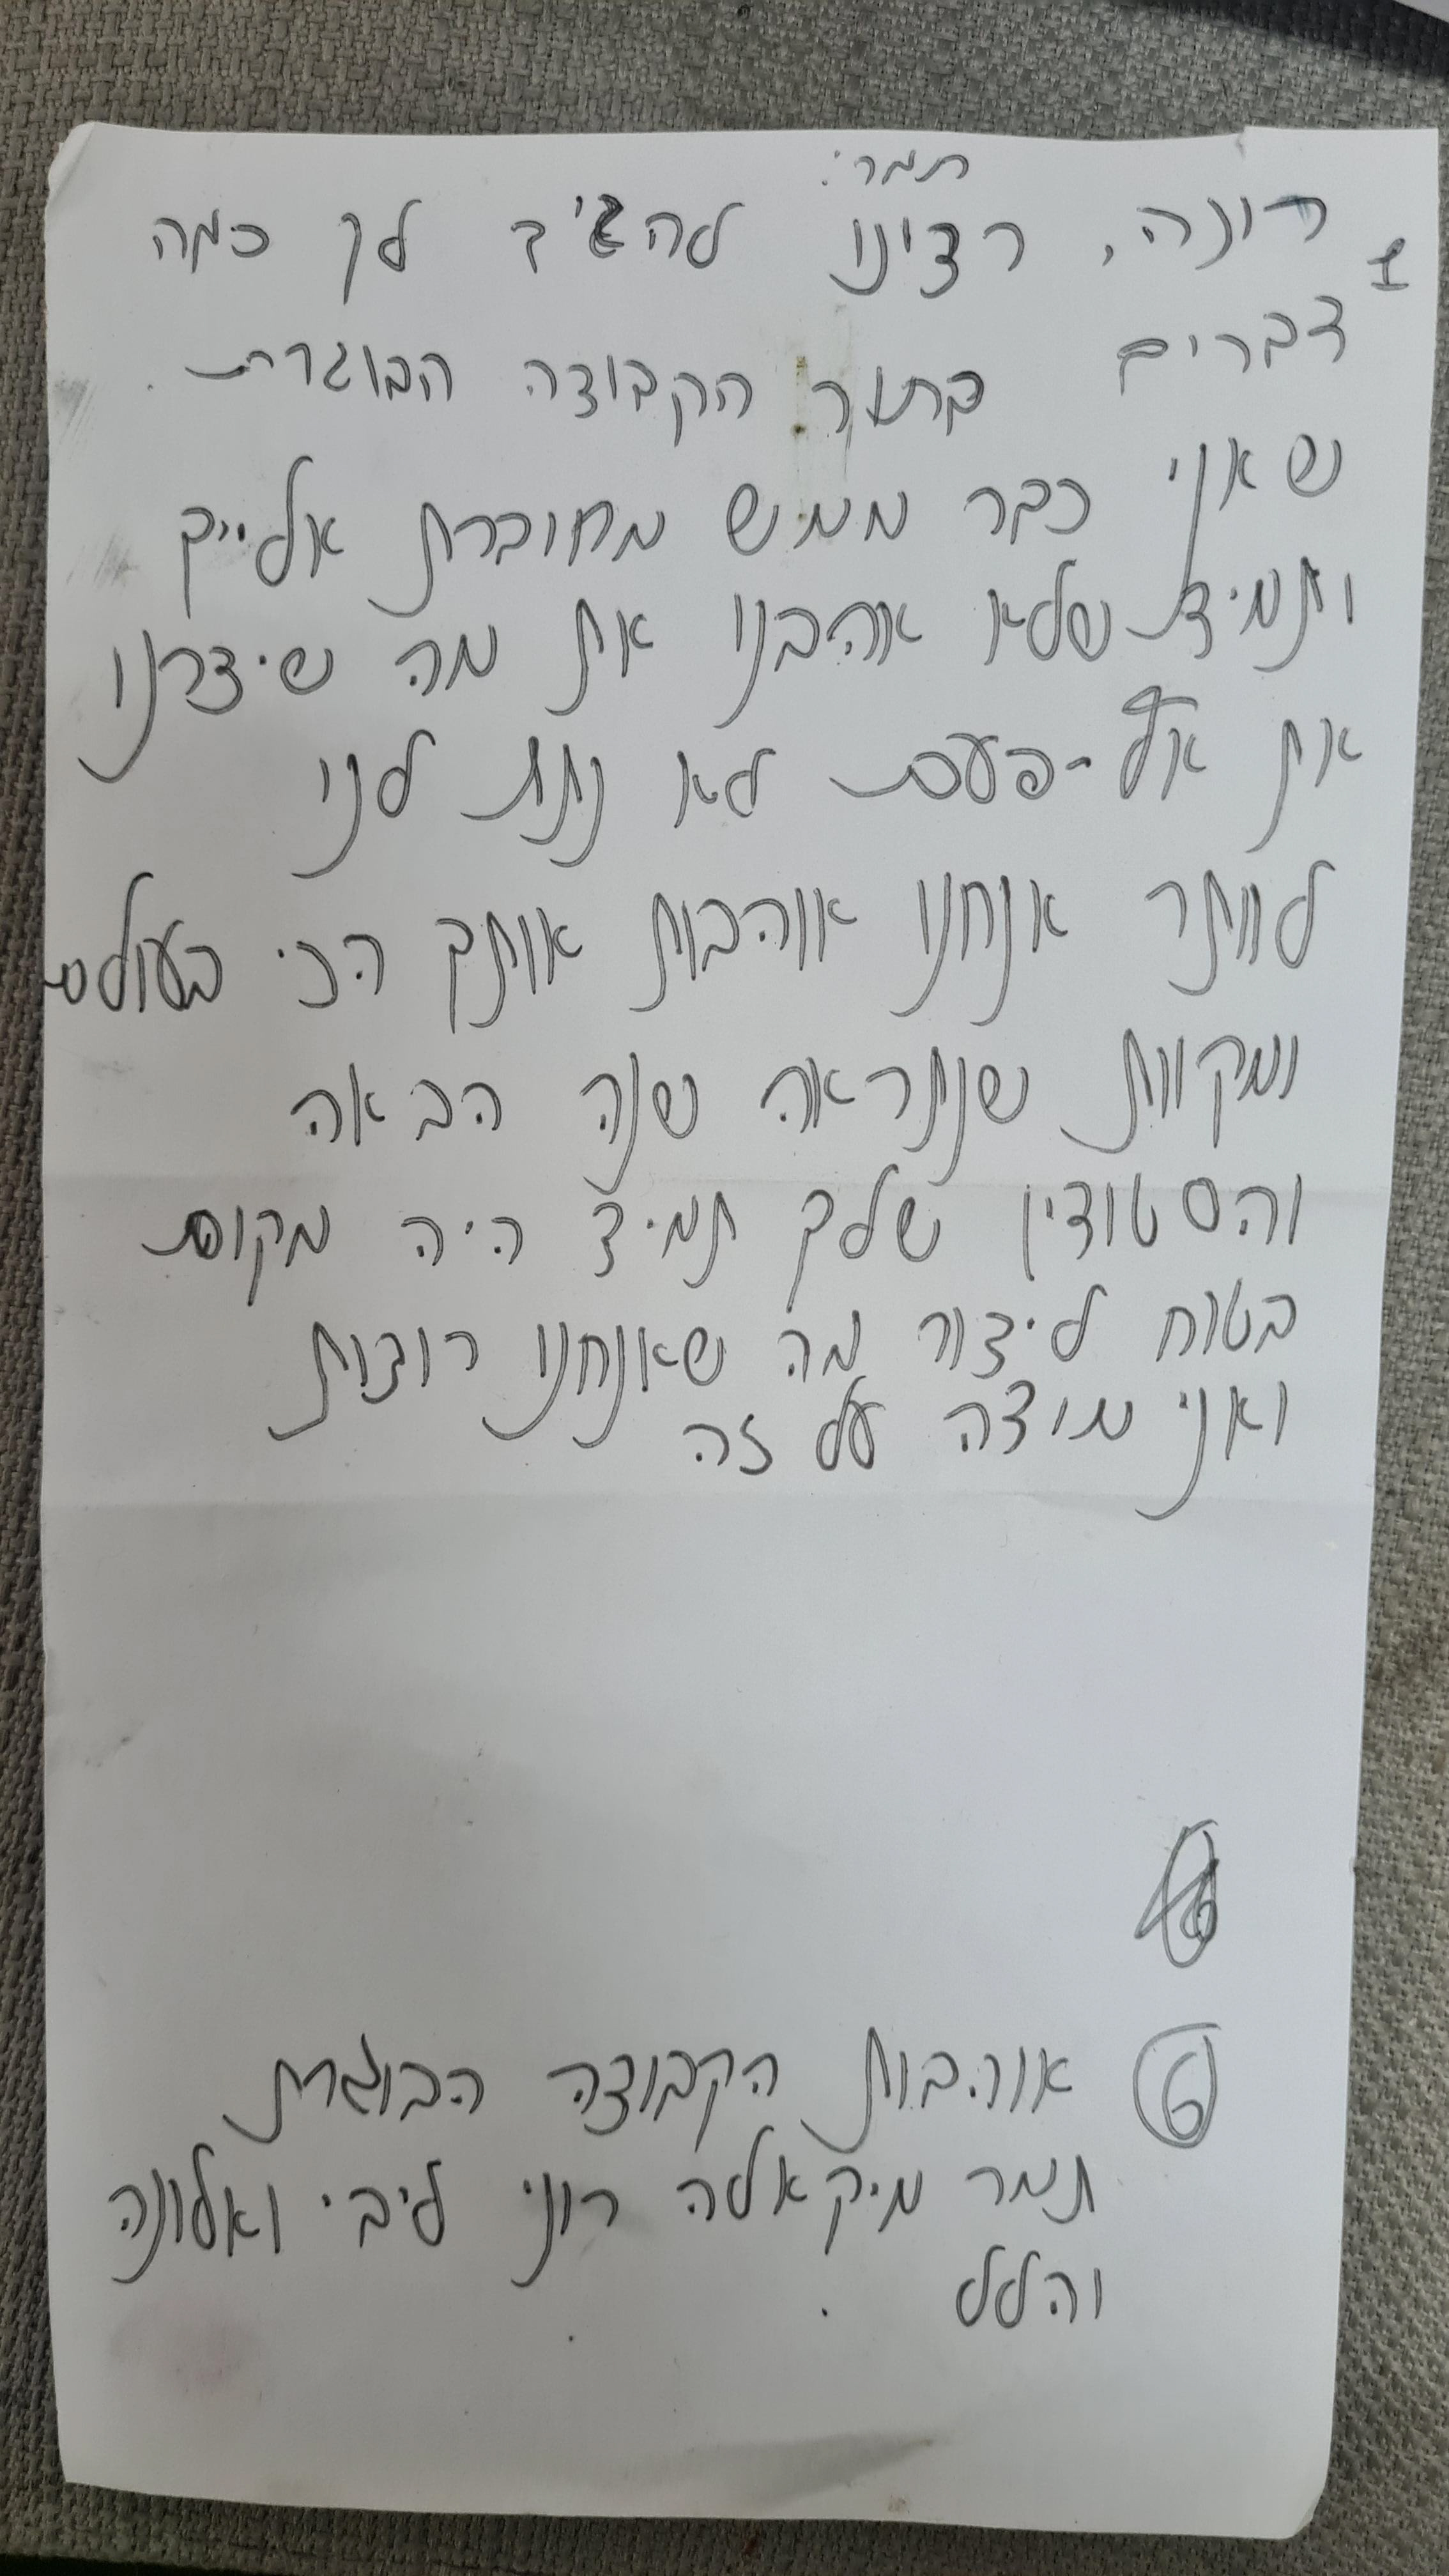 תמר:
1 רונה, רצינו להגיד לך כמה
דברים בתור הקבוצה הבוגרת.
שאני כבר ממש מחוברת אלייך
ותמיד שלא אהבנו את מה שיצרנו
את אף-פעם לא נתת לנו
לוותר אנחנו אוהבות אותך הכי בעולם
ומקוות שנתראה שנה הבאה
והסטודיו שלך תמיד היה מקום
בטוח ליצור מה שאנחנו רוצות
ואני מודה על זה
6 אוהבות הקבוצה הבוגרת
תמר מיקאלה רוני ליבי ואלונה
והלל